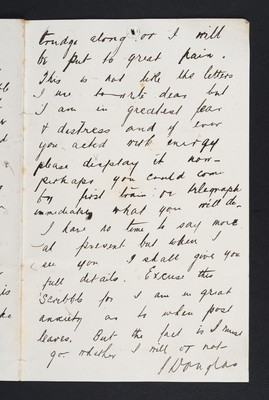 trudge along or I will
be put to great pain.
This is not like the letters
I use to write dear but
I am in greatest fear
& distress and if ever
you acted with energy
please display it now-
Perhaps you could come
by first train or telegraph
immediately what you will do-
I have no time to say more
at present but when I
see you I shall give you
full details. Excuse this
Scribble for I am in great
anxiety as to when post
leaves. But the fact is I must
go whether I will or not
J Douglas